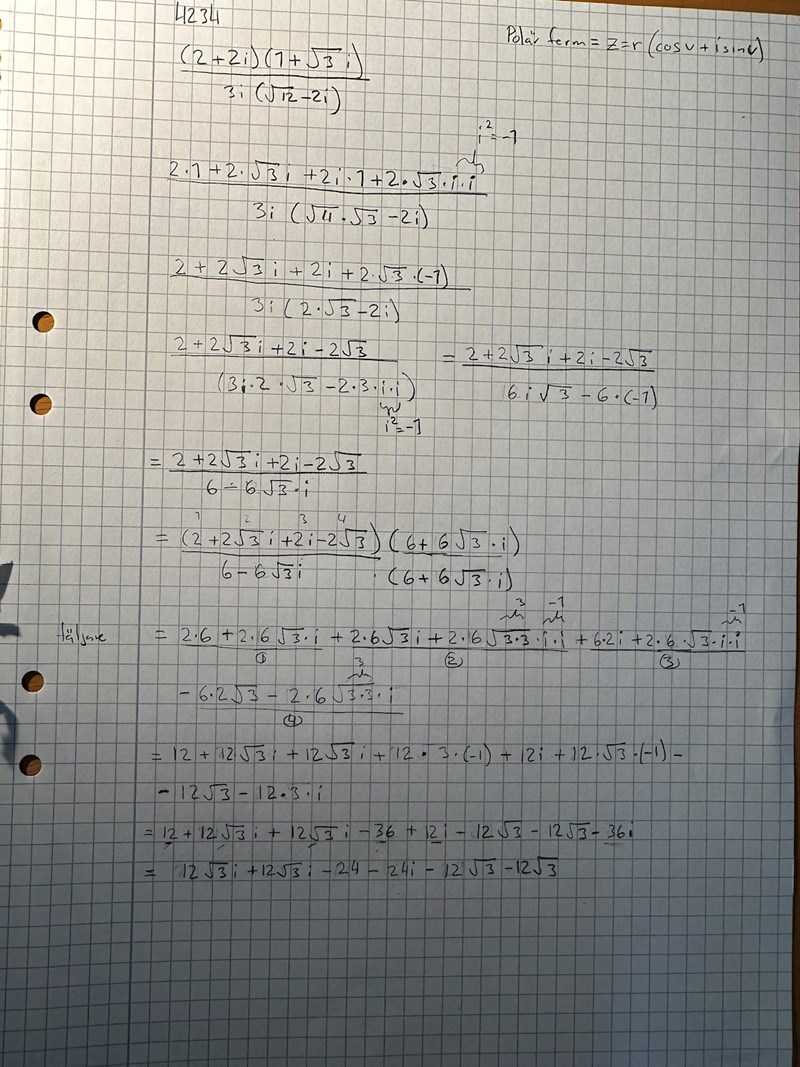 4234
Polär form = z = r (cos v + i sin v)
(2+2i)(1+√3 i)
3i (√12 - 2i)
i² = -1
2·1 + 2·√3 i + 2i·1 + 2·√3·i·i
3i (√4·√3 - 2i)
2 + 2√3 i + 2i + 2·√3·(-1)
3i (2·√3 - 2i)
2 + 2√3 i + 2i - 2√3 = 2 + 2√3 i + 2i - 2√3
(3i·2·√3 - 2·3·i·i) 6·i√3 - 6·(-1)
i² = -1
= 2 + 2√3 i + 2i - 2√3
6 - 6√3·i
1 2 3 4
= (2 + 2√3 i + 2i - 2√3) (6 + 6√3·i)
6 - 6√3 i · (6 + 6√3·i)
3 -1 -1
Täljare = 2·6 + 2·6√3·i + 2·6√3 i + 2·6√3·3·i·i + 6·2i + 2·6·√3·i·i
① ② ③
3
- 6·2√3 - 2·6√3·3·i
④
= 12 + 12√3 i + 12√3 i + 12·3·(-1) + 12i + 12·√3·(-1) -
- 12√3 - 12·3·i
= 12 + 12√3 i + 12√3 i - 36 + 12i - 12√3 - 12√3 - 36i
= 12√3 i + 12√3 i - 24 - 24i - 12√3 - 12√3